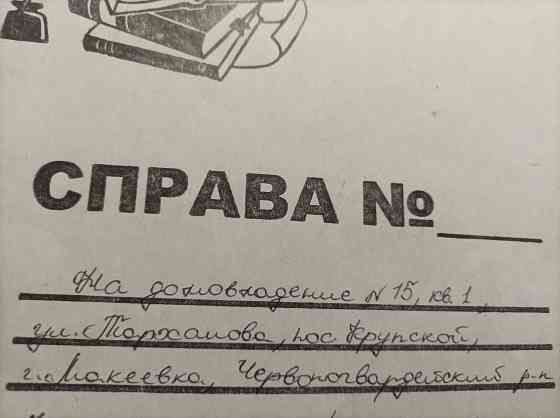 СПРАВА №
На домовладение №15, кв. 1,
ул. Тарханова, пос. Крупской,
г. Макеевка, Червоногвардейский р-н